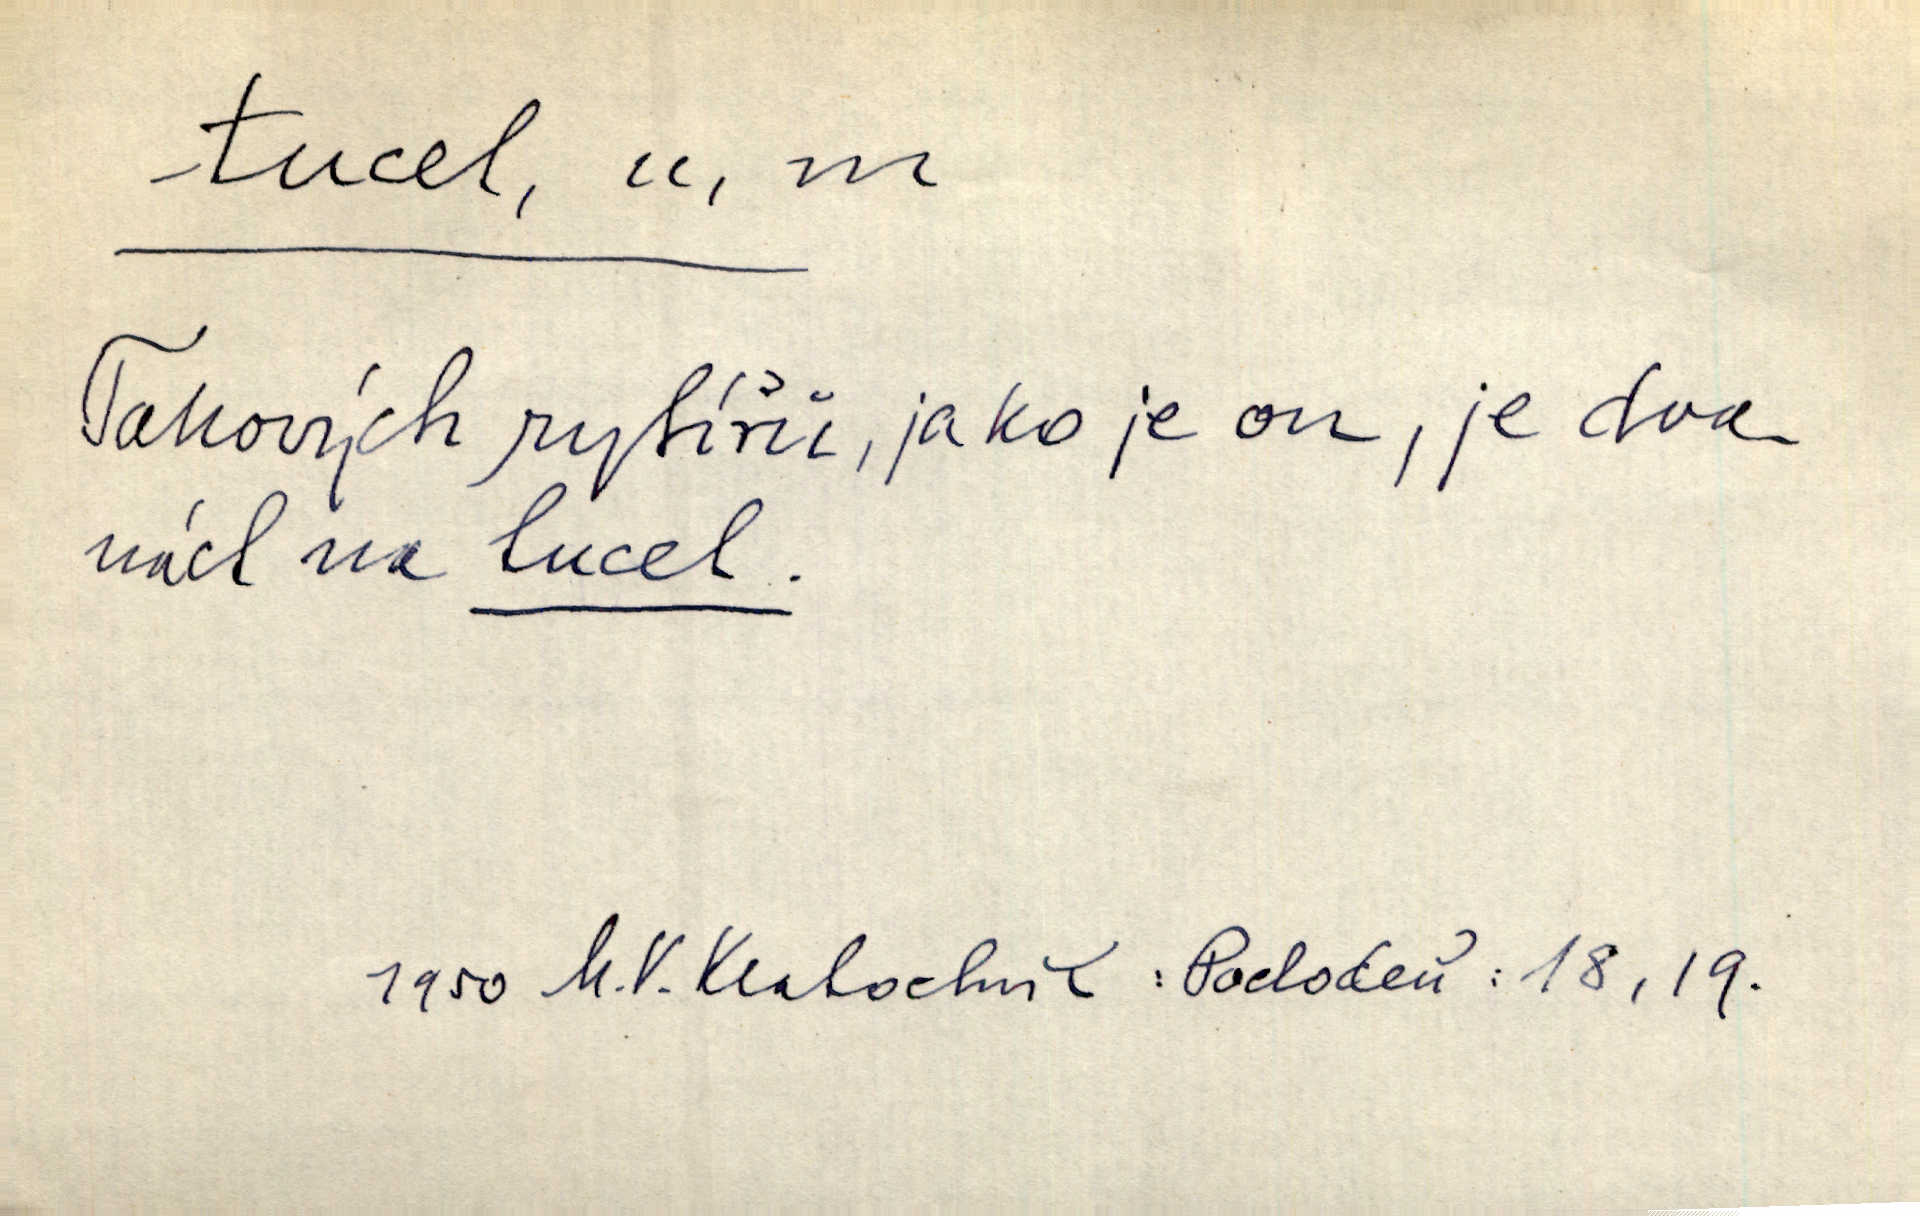 tucet, u, m
Takových rytířů, jako je on, je dva
náct na tucet.
1950 M.V. Kratochvíl : Podoteň : 18, 19.